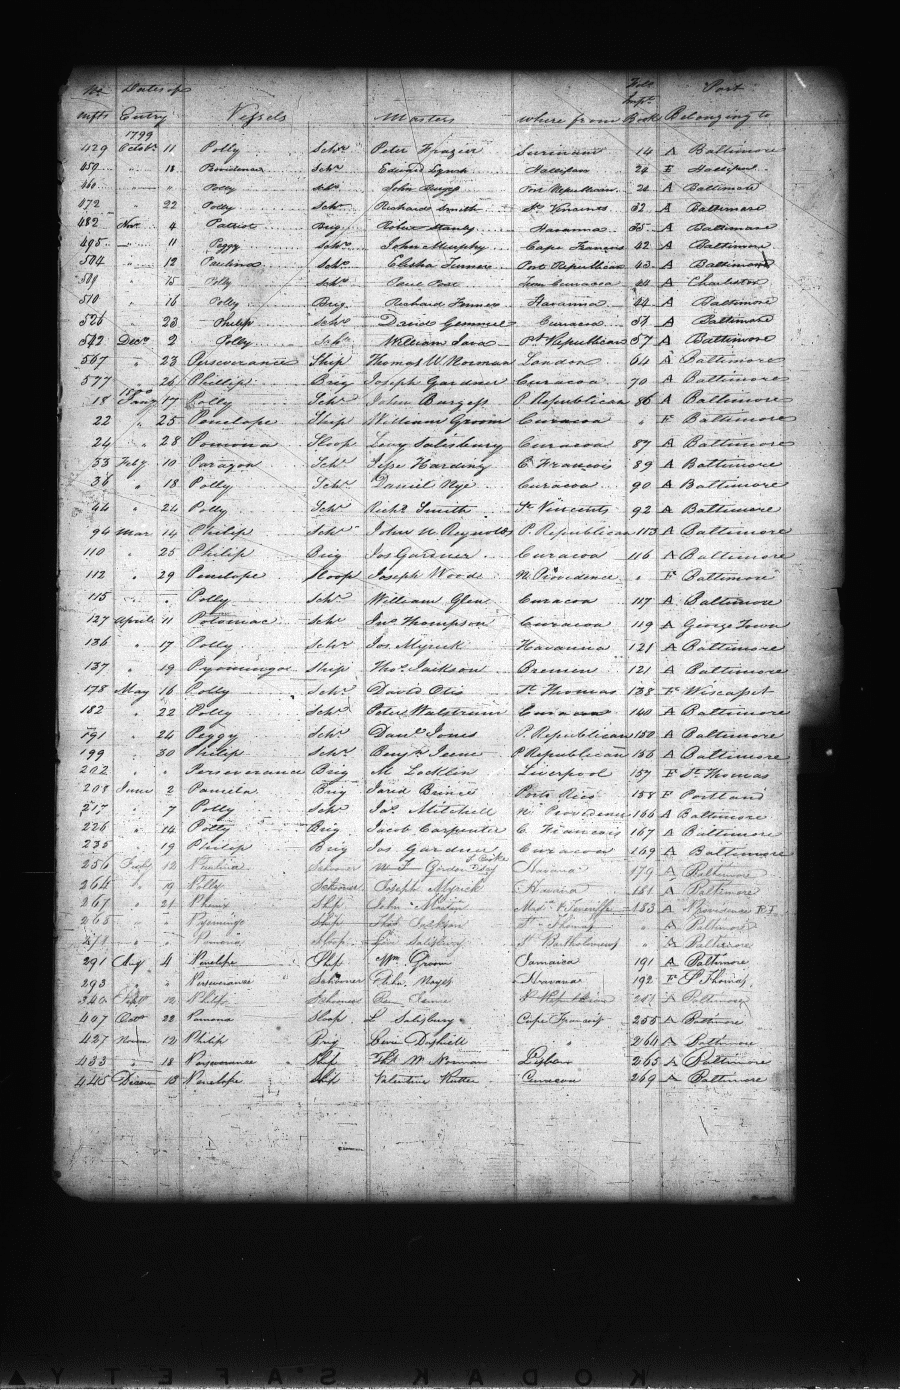 No Dates of Folo Port
mfts Entry Vessels Masters where from Book Belonging to
1799
429 Octobr 11 Polly Schr Peter Frazier Surinam 14 A Baltimore
459 " 18 Providence Schr Edward Lynch Hallifax 24 F Hallifax
460 " " Polly Schr John Burgess Port Republican 24 A Baltimore
472 " 22 Polly Schr Richard Smith St Vincents 32 A Baltimore
482 Nov 4 Patriot Brig Robert Stanly Havanna 35 A Baltimore
495 " 11 Peggy Schr John Murphy Cape Francois 42 A Baltimore
504 " 12 Paulina Schr Elisha Turner Port Republican 43 A Baltimore
509 " 15 Polly Schr Paul Post from Curracoa 44 A Charleston
510 " 16 Polly Brig Richard Havanna 44 A Baltimore
526 " 23 Philip Schr David Gemmel Curacoa 51 A Baltimore
542 Decr 2 Polly Schr William Pt Republican 57 A Baltimore
567 " 23 Perseverance Ship Thomas W. Norman London 64 A Baltimore
577 " 26 Phillip Brig Joseph Gardner Curacoa 70 A Baltimore
1800
18 Jany 17 Polly Schr John Burgess P. Republican 86 A Baltimore
22 " 25 Penelope Ship William Groom Curacoa " F Baltimore
24 " 28 Pomona Sloop Levy Salisbury Curacoa 87 A Baltimore
33 Feby 10 Paragon Schr Jesse Harding C. Francois 89 A Baltimore
36 " 18 Polly Schr Daniel Nye Curacoa 90 A Baltimore
44 " 24 Polly Schr Richd Smith St Vincents 92 A Baltimore
94 Mar 14 Philip Schr John W Reynolds P. Republican 113 A Baltimore
110 " 25 Philip Brig Jos Gardner Curacoa 116 A Baltimore
112 " 29 Penelope Sloop Joseph Wood N. Providence " F Baltimore
115 " " Polly Schr William Glen Curacoa 117 A Baltimore
127 April 11 Potomac Schr Jno Thompson Curacoa 119 A George Town
136 " 17 Polly Schr Jos Myrick Havanna 121 A Baltimore
137 " 19 Pyomingo Ship Thos Jackson Bremen 121 A Baltimore
178 May 16 Polly Schr David Otis St Thomas 138 F Wiscasset
182 " 22 Polly Schr Peter Walstrum Curacoa 140 A Baltimore
191 " 24 Peggy Schr Danl Jones P. Republican 150 A Baltimore
199 " 30 Philip Schr Benjn P Republican 156 A Baltimore
202 " " Perseverance Brig M Locklin Liverpool 157 F St Thomas
208 June 2 Pamela Brig Jared Porto Rico 158 F Portland
217 " 7 Polly Schr Jas Mitchell N. Providence 166 A Baltimore
226 " 14 Polly Brig Jacob Carpenter C. Francais 167 A Baltimore
235 " 19 Philip Brig Jos Gardner Curacoa 169 A Baltimore
256 July 12 Paulina Schooner Gordon Havana 179 A Baltimore
264 " 19 Polly Schooner Joseph Myrick Havana 181 A Baltimore
267 " 21 Phenix Ship John Martin & Teneriffe 183 A Providence R I
268 " " Pyomingo Ship Thos Jackson St Thomas " A Baltimore
271 " " Pomona Sloop Levi Salisbury St Bartholomews " A Baltimore
291 Aug 4 Penelope Ship Wm Groom Jamaica 191 A Baltimore
293 " " Perseverance Schooner Havana 192 F St Thomas
340 Sept 12 Philip Schooner Ben Pt Republican A Baltimore
407 Octr 22 Pomona Sloop L Salisbury Cape Francois 255 A Baltimore
427 Novem 12 Philip Brig Levin Dashiell " 264 A Baltimore
433 " 18 Perseverance Ship Thos W Norman Lisbon 265 A Baltimore
445 Decem 15 Penelope Ship Valentine Curacoa 269 A Baltimore
KODAK SAFETY